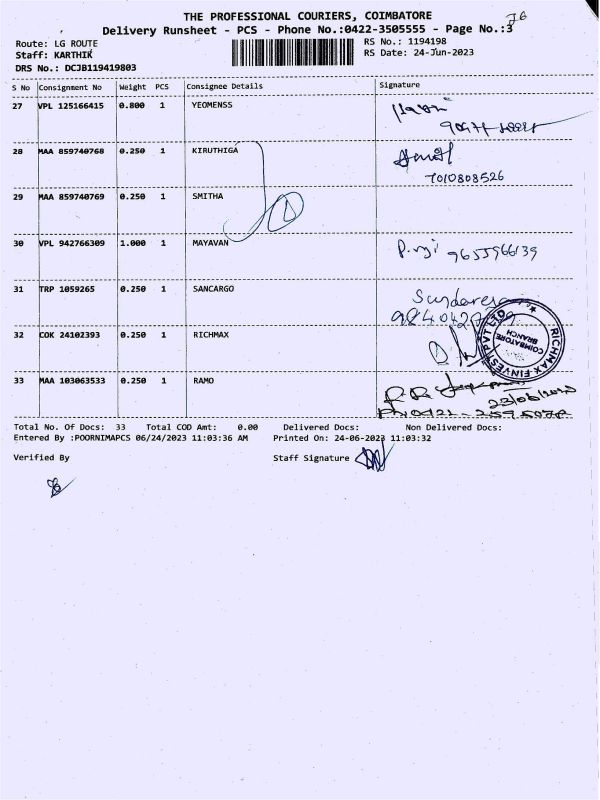 THE PROFESSIONAL COURIERS, COIMBATORE
Delivery Runsheet - PCS - Phone No.:0422-3505555 - Page No.:3
Route: LG ROUTE
Staff: KARTHIK
DRS No.: DCJB119419803
RS No.: 1194198
RS Date: 24-Jun-2023
S No Consignment No Weight PCS Consignee Details Signature
27 VPL 125166415 0.800 1 YEOMENSS
28 MAA 859740768 0.250 1 KIRUTHIGA
7010808526
29 MAA 859740769 0.250 1 SMITHA
30 VPL 942766309 1.000 1 MAYAVAN
31 TRP 1059265 0.250 1 SANCARGO
32 COK 24102393 0.250 1 RICHMAX
RICHMAX FINVEST PVT LTD
COIMBATORE
BRANCH
33 MAA 103063533 0.250 1 RAMO
Total No. Of Docs: 33 Total COD Amt: 0.00 Delivered Docs: Non Delivered Docs:
Entered By :POORNIMAPCS 06/24/2023 11:03:36 AM Printed On: 24-06-2023 11:03:32
Verified By Staff Signature